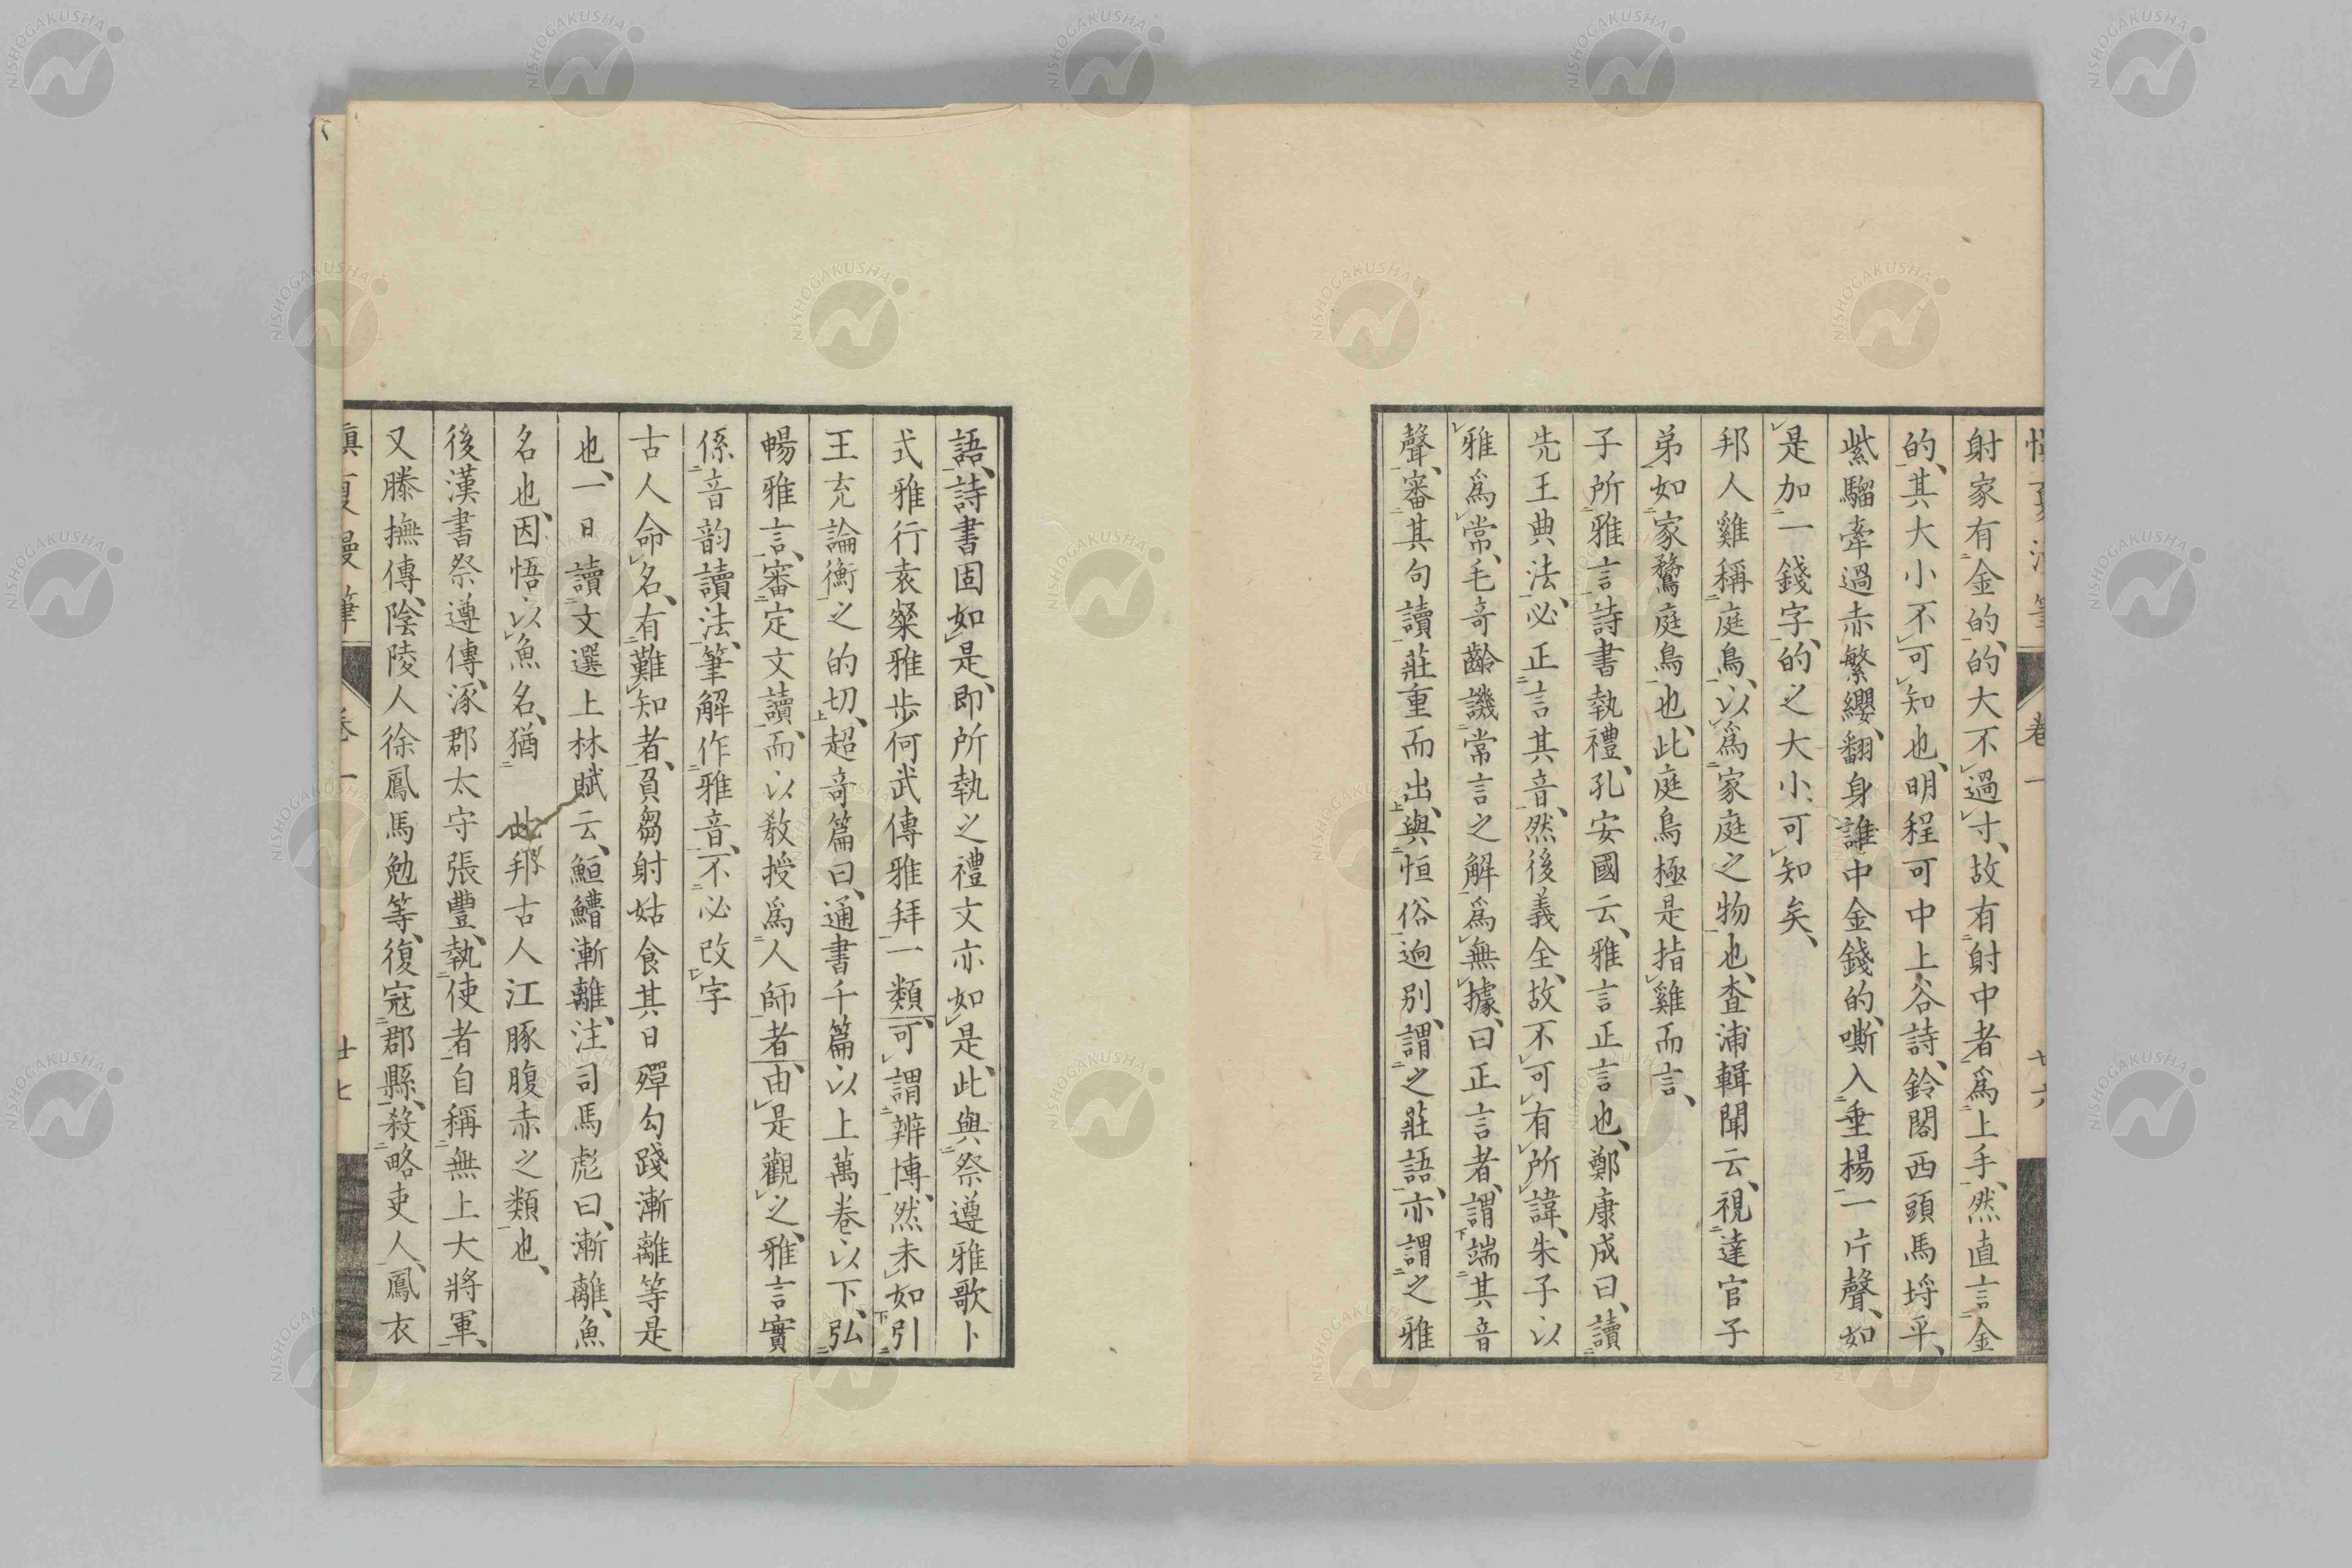 慎夏漫筆 卷一 廿六
射家有金的、的大不過寸、故有射中者爲上手、然直言金
的、其大小不可知也、明程可中上谷詩、鈴閣西頭馬埒平、
紫騮牽過赤繁纓、翻身誰中金錢的、嘶入垂楊一片聲、如
是加一錢字、的之大小可知矣、
邦人雞稱庭鳥、以爲家庭之物也、査浦輯聞云、視達官子
弟、如家鶩庭鳥也、此庭鳥極是指雞而言、
子所雅言、詩書執禮、孔安國云、雅言正言也、鄭康成曰、讀
先王典法、必正言其音、然後義全、故不可有所諱、朱子以
雅爲常、毛奇齡譏常言之解爲無據、曰正言者、謂端其音
聲、審其句讀、莊重而出、與恒俗迥別、謂之莊語、亦謂之雅
語、詩書固如是、即所執之禮文亦如是、此與祭遵雅歌卜
式雅行袁粲雅步何武傳雅拜一類、可謂辨博、然未如引
王充論衡之的切、超奇篇曰、通書千篇以上萬卷以下、弘
暢雅言、審定文讀、而以敎授爲人師者、由是觀之、雅言實
係音韵讀法、筆解作雅音、不必改字
古人命名、有難知者、負芻射姑食其日磾勾踐漸離等是
也、一日讀文選上林賦云、䱭䲛漸離、注司馬彪曰、漸離、魚
名也、因悟以魚名、猶 此邦古人江豚腹赤之類也、
後漢書祭遵傳、涿郡太守張豐、執使者自稱無上大將軍、
又滕撫傳、陰陵人徐鳳馬勉等、復寇郡縣、殺略吏人、鳳衣
慎夏漫筆 卷一 廿七
NISHOGAKUSHA